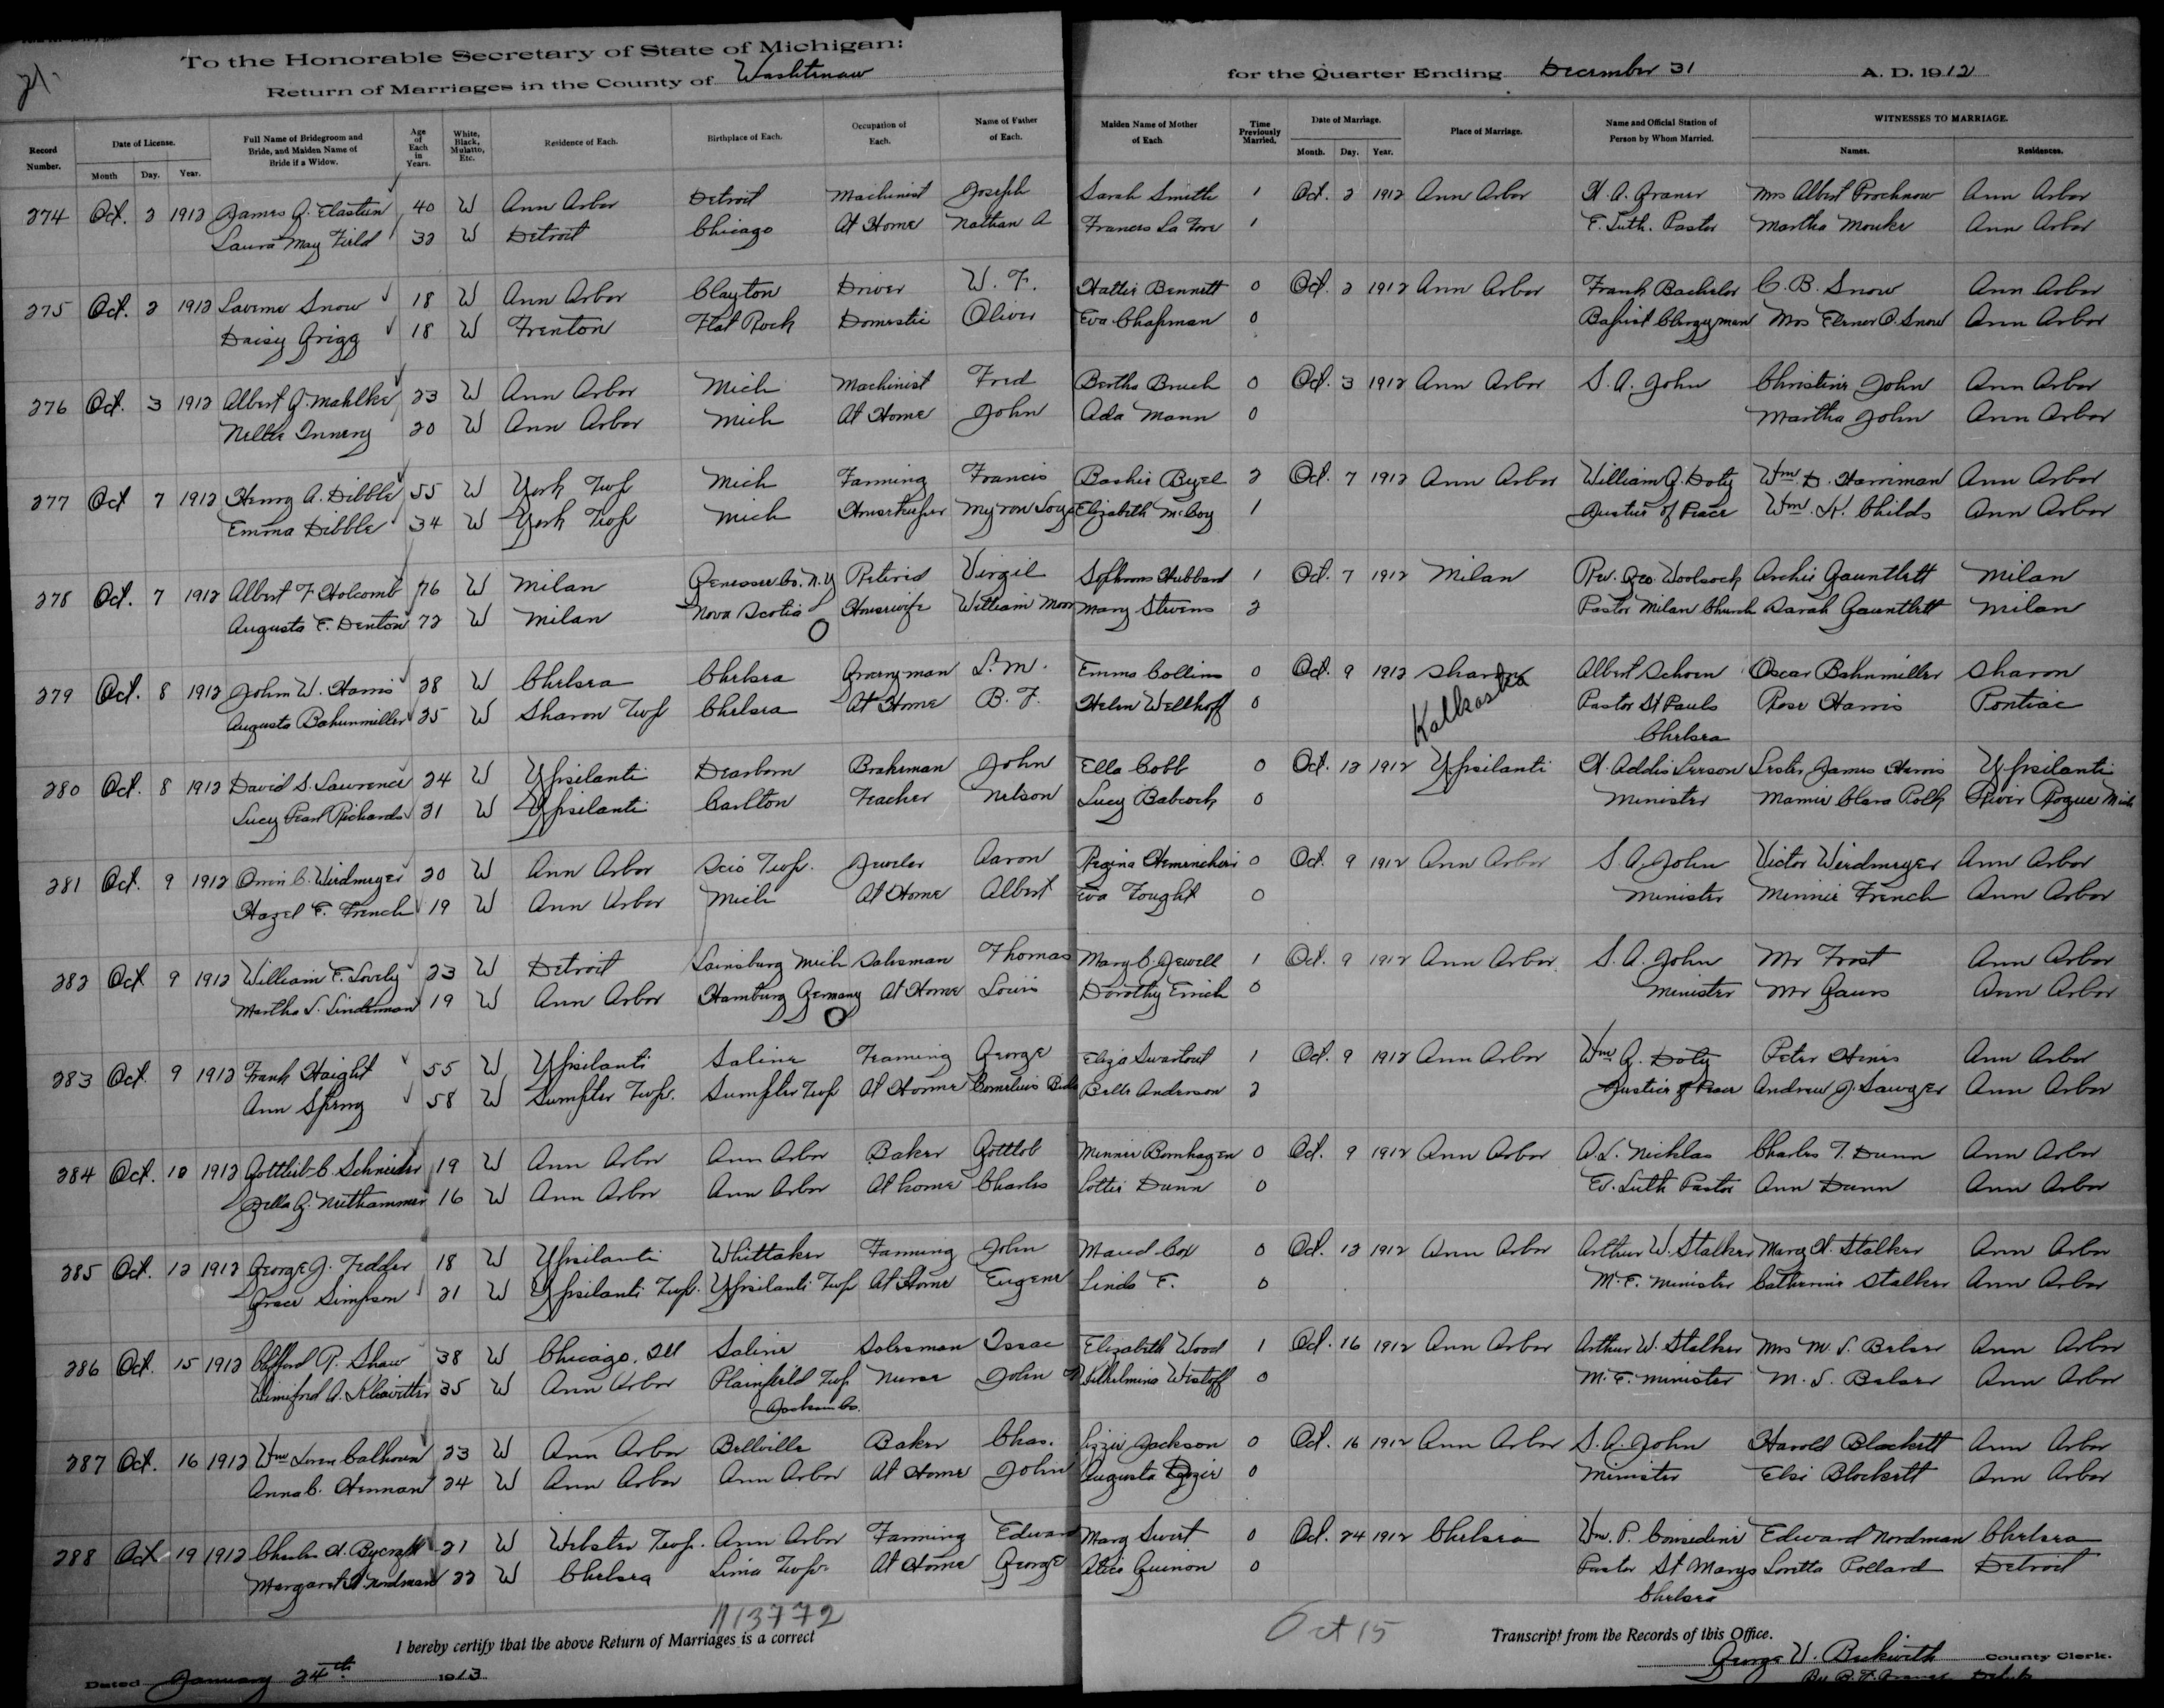 21.
To the Honorable Secretary of State of Michigan:
Return of Marriages in the County of Washtenaw
for the Quarter Ending December 31 A. D. 1912
Record Number. Date of License. Month Day. Year. Full Name of Bridegroom and Bride, and Maiden Name of Bride if a Widow. Age of Each in Years. White, Black, Mulatto, Etc. Residence of Each. Birthplace of Each. Occupation of Each. Name of Father of Each. Maiden Name of Mother of Each Time Previously Married. Date of Marriage. Month. Day. Year. Place of Marriage. Name and Official Station of Person by Whom Married. WITNESSES TO MARRIAGE. Names. Residences.
274 Oct. 2 1912 James J. Elastein 40 W Ann Arbor Detroit Machinist Joseph Sarah Smith 1 Oct. 2 1912 Ann Arbor H. A. Graner Mrs Albert Prochnow Ann Arbor
Laura May Field 32 W Detroit Chicago At Home Nathan A Frances La Fore 1 E. Luth. Pastor Martha Monke Ann Arbor
275 Oct. 2 1912 Laverne Snow 18 W Ann Arbor Clayton Driver W. F. Hattie Bennett 0 Oct. 2 1912 Ann Arbor Frank Bachelor C. B. Snow Ann Arbor
Daisy Grigg 18 W Trenton Flat Rock Domestic Oliver Eva Chapman 0 Baptist Clergyman Mrs Elener O. Snow Ann Arbor
276 Oct. 3 1912 Albert J. Mahlke 23 W Ann Arbor Mich Machinist Fred Bertha Bruch 0 Oct. 3 1912 Ann Arbor S. A. John Christine John Ann Arbor
Nellie 20 W Ann Arbor Mich At Home John Ada Mann 0 Martha John Ann Arbor
277 Oct 7 1912 Henry A. Dibble 55 W York Twp Mich Farming Francis Byzel 2 Oct. 7 1912 Ann Arbor William G. Doty Wm. D. Harriman Ann Arbor
Emma Dibble 34 W York Twp Mich Housekeeper Myron Elizabeth McCoy 1 Justice of Peace Wm. K. Childs Ann Arbor
278 Oct. 7 1912 Albert F Holcomb 76 W Milan Genessee Co. N.Y Retired Virgil Hubbard 1 Oct. 7 1912 Milan Rev. Geo. Woolcock Archie Gauntlett Milan
Augusta E. Denton 72 W Milan Nova Scotia Housewife William Moor Mary Stevens 2 Pastor Milan Church Sarah Gauntlett Milan
O
279 Oct. 8 1912 John W. Harris 28 W Chelsea Chelsea Groceryman L. M. Emma Collins 0 Oct. 9 1912 Sharon Albert Schoen Oscar Bahnmiller Sharon
Augusta Bahnmiller 25 W Sharon Twp Chelsea At Home B. F. Helen Wellhoff 0 Kalkaska Pastor St Pauls Rose Harris Pontiac
Chelsea
280 Oct. 8 1912 David S. Lawrence 24 W Ypsilanti Dearborn Brakeman John Ella Cobb 0 Oct. 12 1912 Ypsilanti H. Addis Leeson Leslie James Harris Ypsilanti
Lucy Pearl Richards 21 W Ypsilanti Carlton Teacher Nelson Lucy Babcock 0 Minister Mamie Clara Polk River Rogue Mich
281 Oct. 9 1912 Orrin C. Weidmeyer 20 W Ann Arbor Scio Twp. Jeweler Aaron Regina 0 Oct. 9 1912 Ann Arbor S. A. John Victor Weidmeyer Ann Arbor
Hazel F. French 19 W Ann Arbor Mich At Home Albert Eva Fought 0 Minister Minnie French Ann Arbor
282 Oct 9 1912 William E. Lovely 23 W Detroit Lainsburg Mich Salesman Thomas Mary C. Jewell 1 Oct. 9 1912 Ann Arbor. S. A. John Mr Frost Ann Arbor
Martha L. Lindenman 19 W Ann Arbor Hamburg Germany At Home Louis Dorothy Errich 0 Minister Mr Gauss Ann Arbor
O
283 Oct. 9 1912 Frank Haight 55 W Ypsilanti Saline Teaming George Eliza Swartout 1 Oct. 9 1912 Ann Arbor Wm G. Doty Peter Hines Ann Arbor
Ann Spring 58 W Sumpter Twp. Sumpter Twp At Home Cornelius Belle Anderson 2 Justice of Peace Andrew J. Sawyer Ann Arbor
284 Oct. 10 1912 Gottlieb C. Schneider 19 W Ann Arbor Ann Arbor Baker Gottlob Minnie Bornhagen 0 Oct. 9 1912 Ann Arbor A. L. Nicklas Charles T. Dunn Ann Arbor
Zella G. Neithammer 16 W Ann Arbor Ann Arbor At home Charles Lottie Dunn 0 Ev. Luth Pastor Ann Dunn Ann Arbor
285 Oct. 12 1912 George J. Fedder 18 W Ypsilanti Whittaker Farming John Maud Cox 0 Oct. 12 1912 Ann Arbor Arthur W. Stalker Mary H. Stalker Ann Arbor
Grace Simpson 21 W Ypsilanti Twp. Ypsilanti Twp At Home Eugene Linda E. 0 M. E. Minister Catherine Stalker Ann Arbor
286 Oct. 15 1912 Clifford R. Shaw 38 W Chicago, Ill Saline Salesman Isaac Elizabeth Wood 1 Oct. 16 1912 Ann Arbor Arthur W. Stalker Mrs M. S. Belser Ann Arbor
Winiford A. Kleavitter 35 W Ann Arbor Plainfield Twp Nurse John Wilhelmina Westoff 0 M. E. Minister M. S. Belser Ann Arbor
Jackson Co.
287 Oct. 16 1912 Wm Loren Calhoun 23 W Ann Arbor Bellville Baker Chas. Lizzie Jackson 0 Oct. 16 1912 Ann Arbor S. A. John Harold Blackett Ann Arbor
Anna C. Herman 24 W Ann Arbor Ann Arbor At Home John Augusta 0 Minister Elsi Blackett Ann Arbor
288 Oct 19 1912 Charles H. Bycraft 21 W Webster Twp. Ann Arbor Farming Edward Mary Sweet 0 Oct. 24 1912 Chelsea Wm. P. Considine Edward Nordman Chelsea
Margaret Nordman 22 W Chelsea Lima Twp. At Home George Alice Guinon 0 Pastor St Marys Loretta Pollard Detroit
Chelsea
113772
Oct 15
I hereby certify that the above Return of Marriages is a correct Transcript from the Records of this Office.
Dated January 24th 1913
George W. Beckwith County Clerk.
Deputy